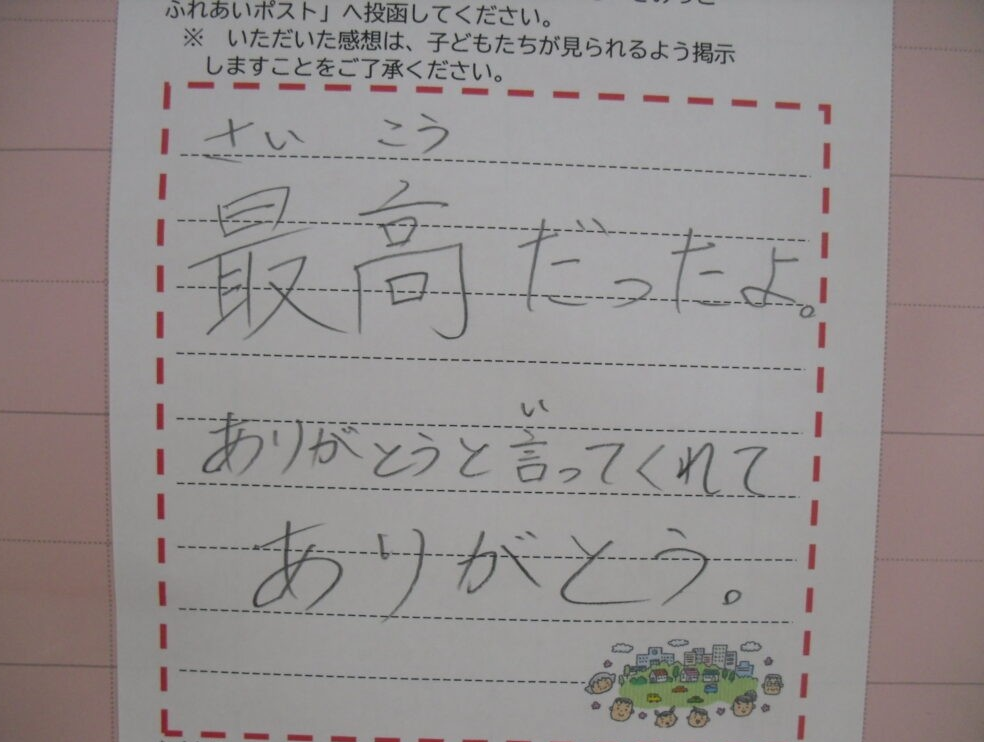 ふれあいポスト」へ投函してください。
※ いただいた感想は、子どもたちが見られるよう掲示
しますことをご了承ください。
さい こう
最高だったよ。
い
ありがとうと言ってくれて
ありがとう。